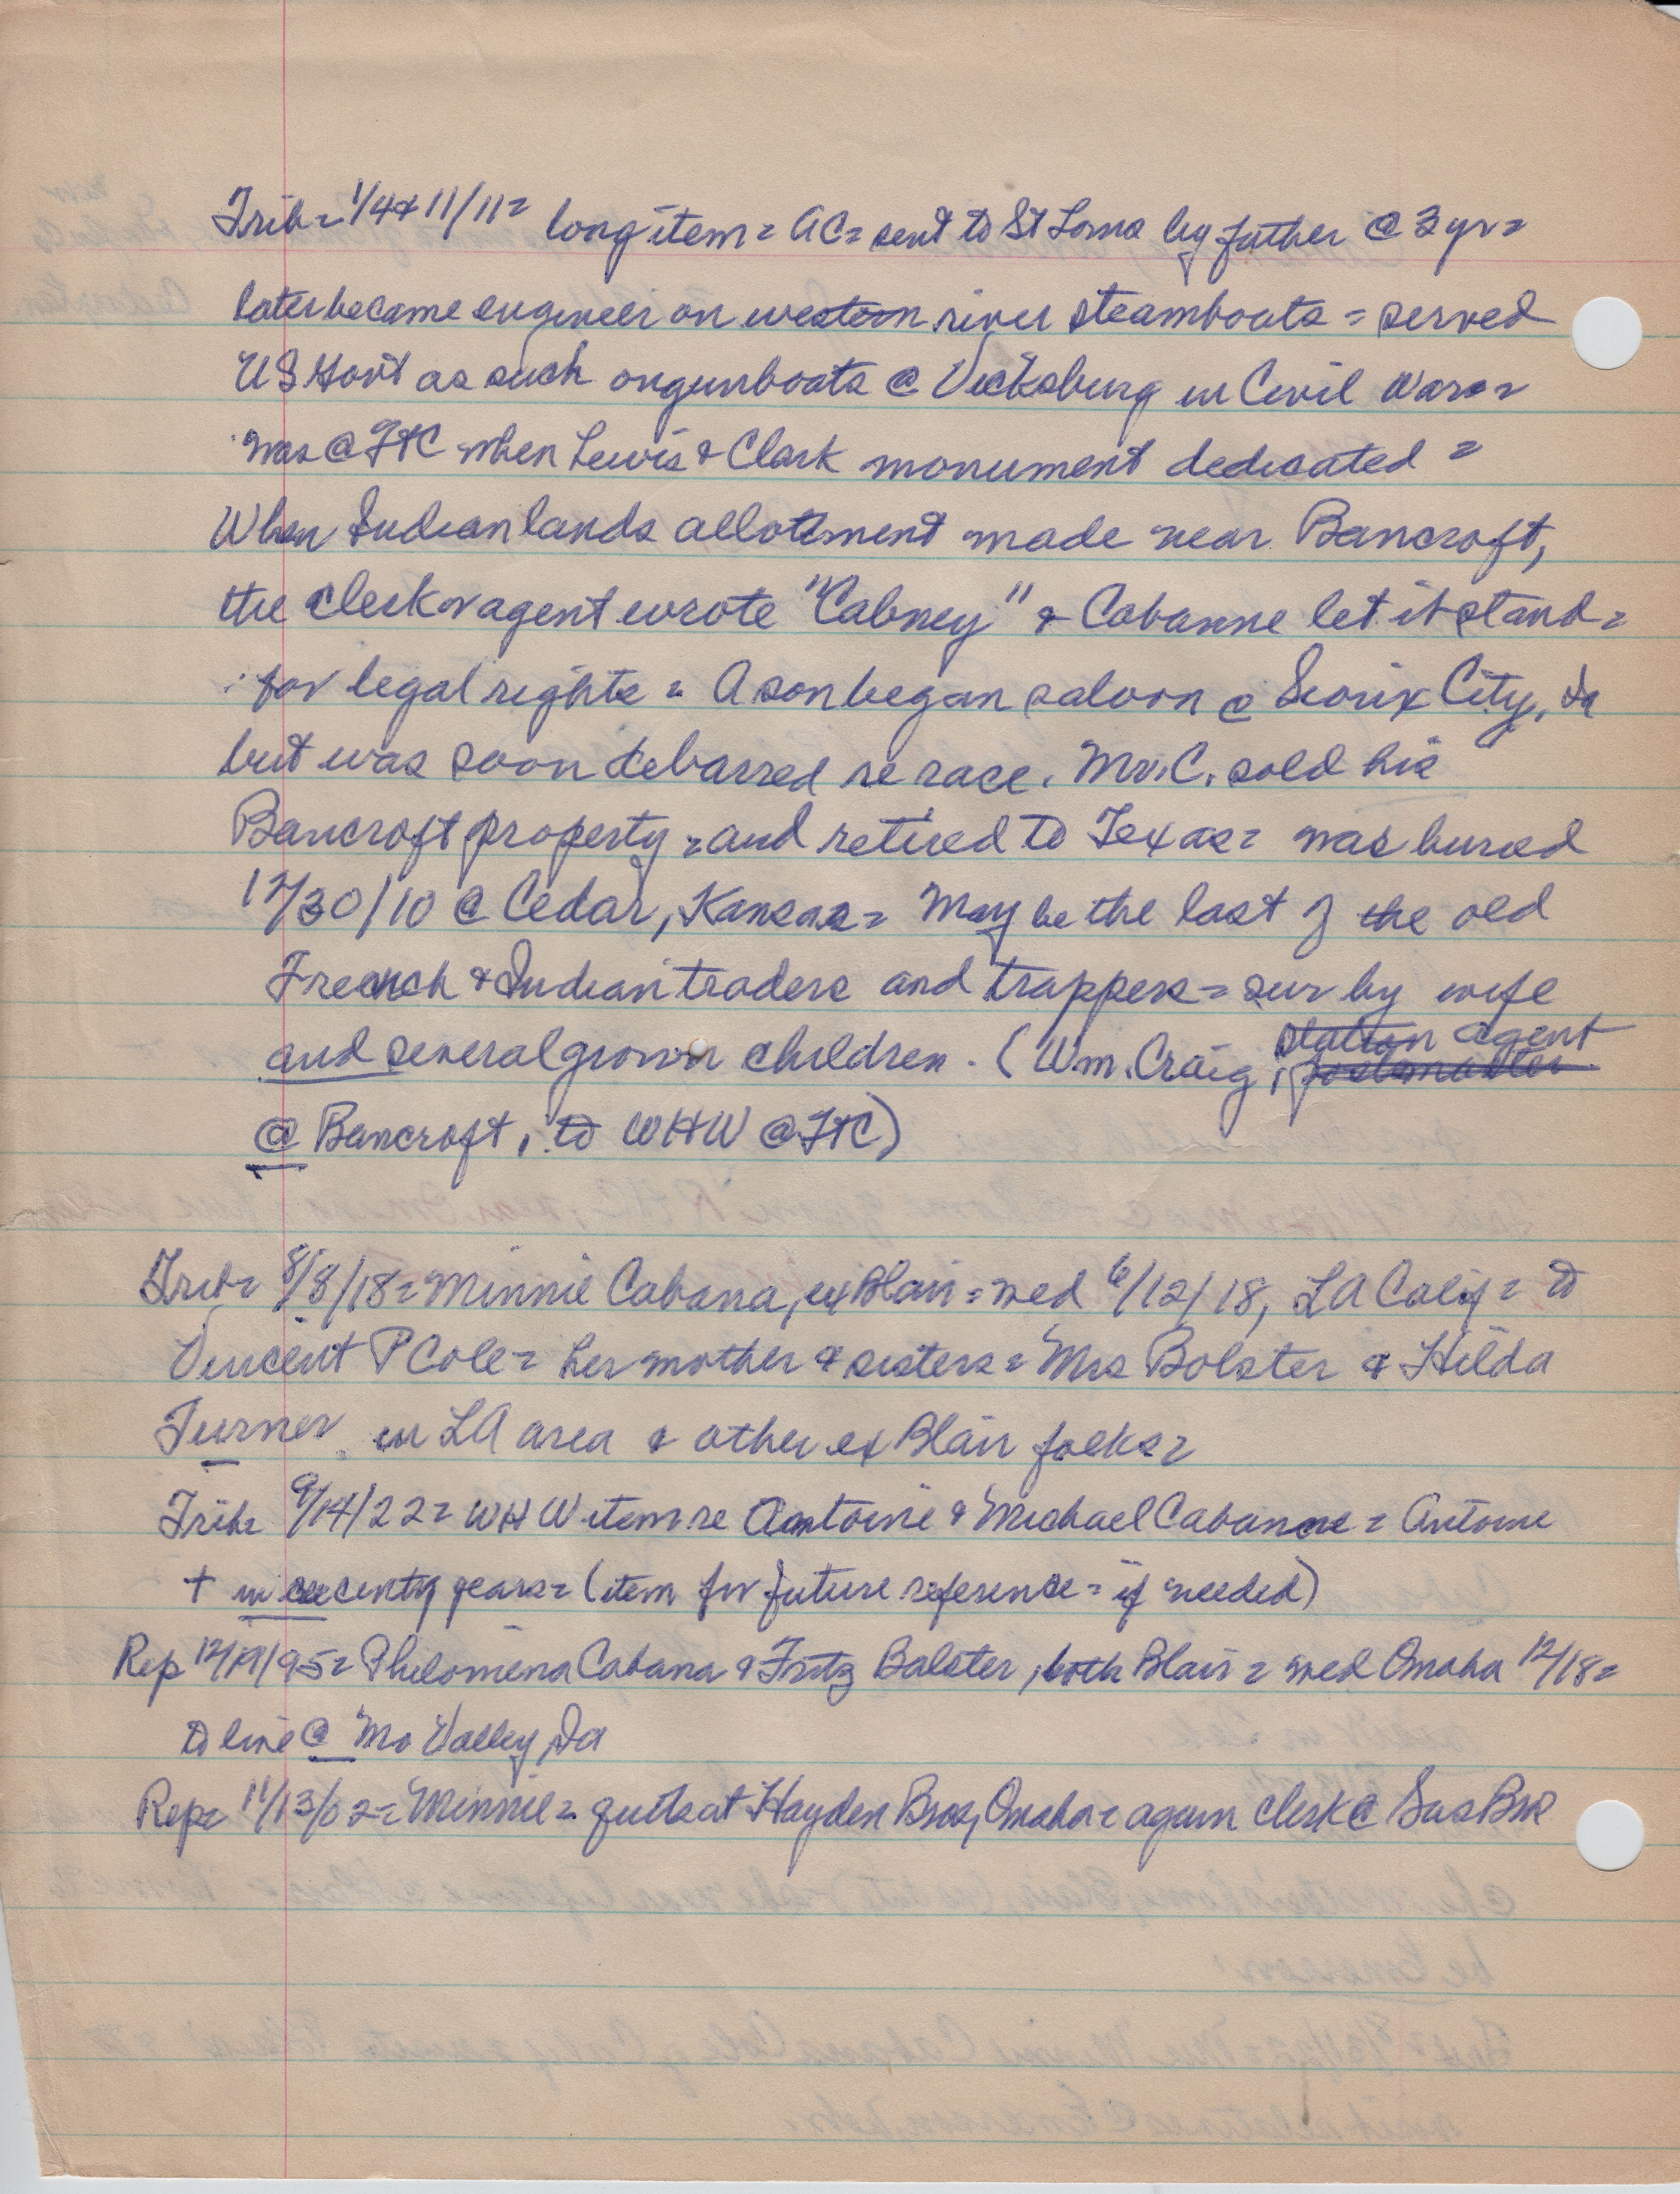 Trib = 1/4 & 11/11 = long item = AC = sent to St Louis by father @ 3 yr =
later became engineer on western river steamboats = served
US Govt as such on gunboats @ Vicksburg in Civil War =
was @ FtC when Lewis & Clark monument dedicated =
When Indian lands allotment made near Bancroft,
the clerk or agent wrote "Cabney" & Cabanne let it stand =
for legal rights = A son began saloon @ Sioux City, Ia
but was soon debarred re race. Mr. C. sold his
Bancroft property = and retired to Texas = was buried
12/30/10 @ Cedar, Kansas = May be the last of the old
French & Indian traders and trappers = sur by wife
and several grown children. (Wm. Craig, station agent postmaster
@ Bancroft, to WHW @ FtC)
Trib = 8/8/18 = Minnie Cabana, ex Blair = wed 6/12/18, LA Calif = to
Vincent P Cole = her mother & sisters = Mrs Bolster & Hilda
Turner in LA area & other ex Blair folks =
Trib = 9/14/22 = WHW item re Antoine & Michael Cabanne = Antoine
+ in recent years = (item for future reference = if needed)
Rep 12/19/95 = Philomena Cabana & Fritz Balster, both Blair = wed Omaha 12/18 =
to live @ Mo Valley, Ia
Rep = 11/13/02 = Minnie = quits at Hayden Bros, Omaha = again clerk @ Sas Bros